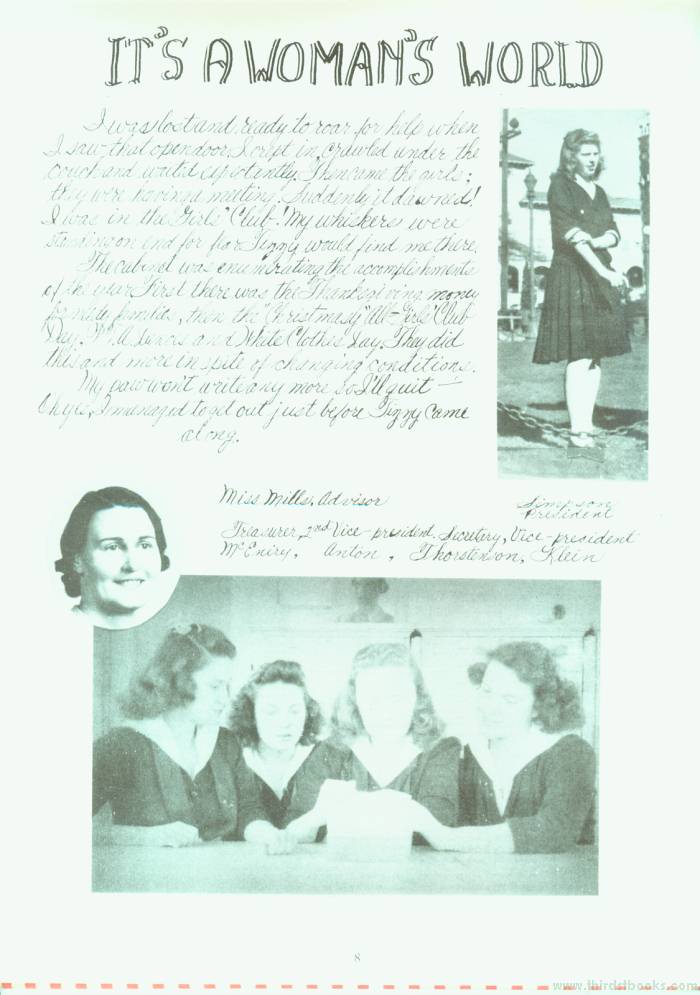 IT'S A WOMAN'S WORLD
I was lost and ready to roar for help when
I saw that open door. I crept in, crawled under the
couch and waited expectantly. Then came the girls;
they were having a meeting. Suddenly it dawned!
I was in the Girls' Club! My whiskers were
standing on end for fear Tizzy would find me there.
The cabinet was enumerating the accomplishments
of the year. First there was the Thanksgiving money
for needy families, then the Christmasy "All-Girls' Club
Day." P.T.A. and White Clothes Day. They did
this and more in spite of changing conditions.
My paw won't write any more so I'll quit —
Oh yes, I managed to get out just before Tizzy came
along.
Miss Mills, Advisor
Simpson
President
Treasurer, 2nd Vice-president, Secretary, Vice-president
McEniry, Anton, Thorstenson, Klein
8